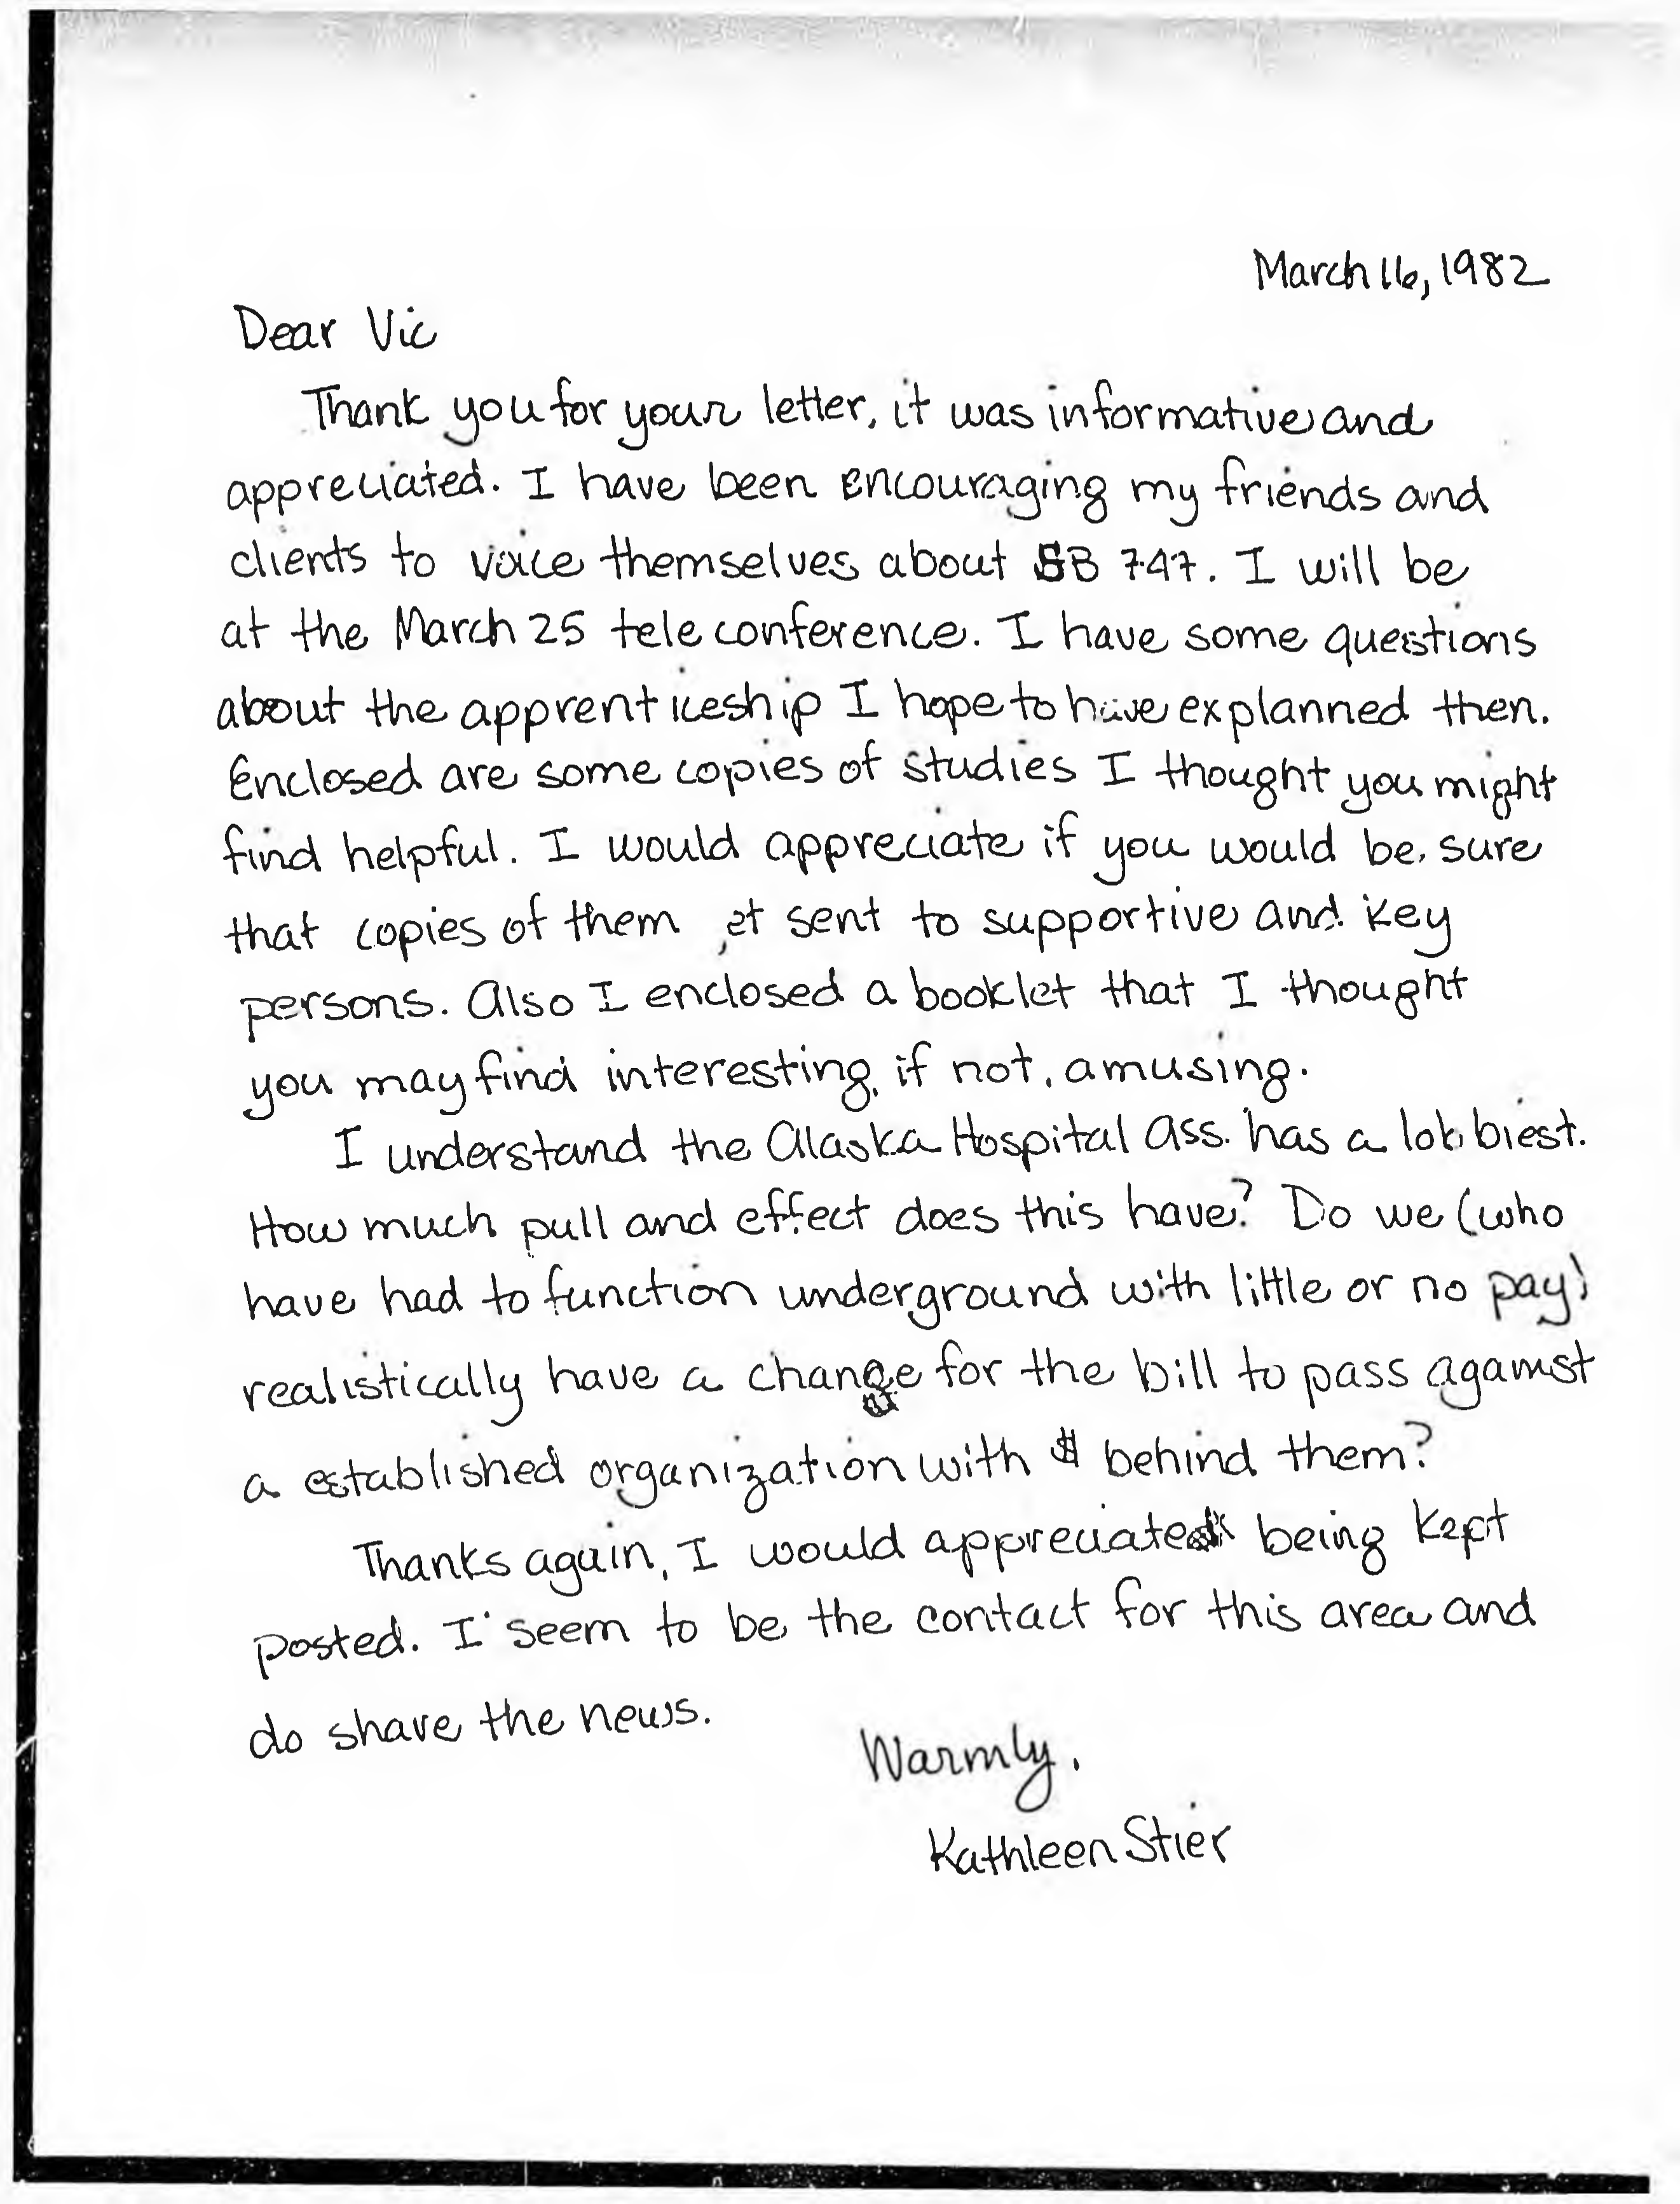 March 16, 1982
Dear Vic
Thank you for your letter, it was informative and
appreciated. I have been encouraging my friends and
clients to voice themselves about SB 747. I will be
at the March 25 tele conference. I have some questions
about the apprenticeship I hope to have explanned then.
Enclosed are some copies of studies I thought you might
find helpful. I would appreciate if you would be sure
that copies of them et sent to supportive and key
persons. Also I enclosed a booklet that I thought
you may find interesting, if not, amusing.
I understand the Alaska Hospital Ass. has a lobbiest.
How much pull and effect does this have? Do we (who
have had to function underground with little or no pay)
realistically have a change for the bill to pass against
a established organization with $ behind them?
Thanks again, I would appreciate being kept
posted. I seem to be the contact for this area and
do share the news.
Warmly,
Kathleen Stier